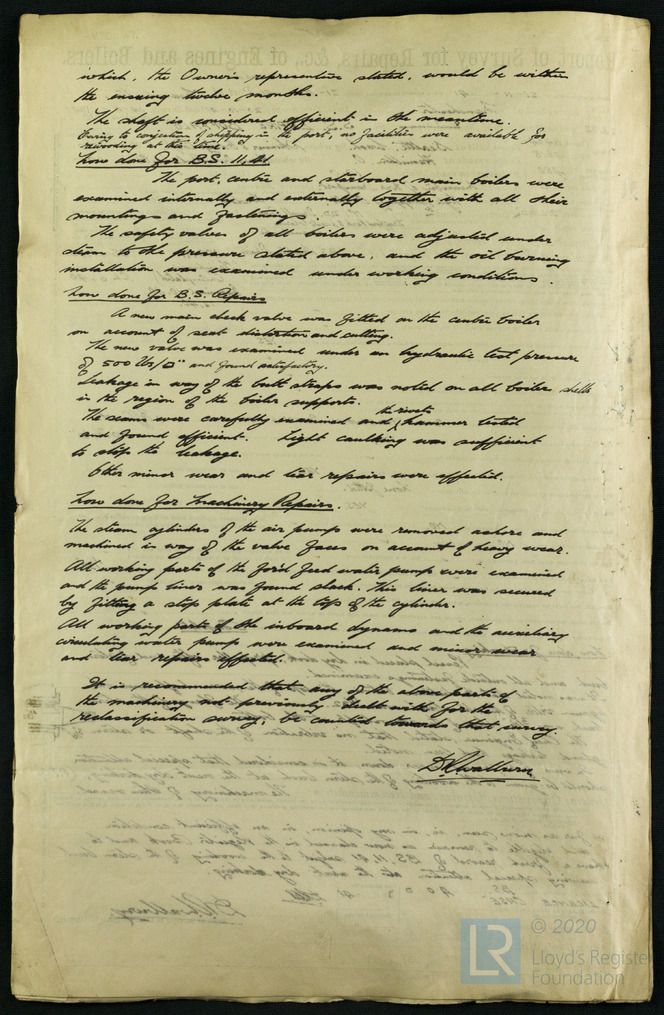 which, the Owners representive stated, would be within
the ensuing twelve months.
The shaft is considered efficient in the meantime.
Owing to conjection of shipping in the port, no facilities were available for
rewooding at this time.
Now done for B.S. 11.41
The port, centre and starboard main boilers were
examined internally and externally together with all their
mountings and fastenings.
The safety valves of all boilers were adjusted under
steam to the pressure stated above, and the oil burning
installation was examined under working conditions.
Now done for B.S. Repairs
A new main check valve was fitted on the centre boiler
on account of seat distortion and cutting.
The new valve was examined under an hydraulic test pressure
of 500 lbs/□" and found satisfactory.
Leakage in way of the butt straps was noted on all boiler shells
in the region of the boiler supports.
The seams were carefully examined and the rivets hammer tested
and found efficient. Light caulking was sufficient
to stop the leakage.
Other minor wear and tear repairs were effected.
Now done for Machinery Repairs.
The steam cylinders of the air pumps were removed ashore and
machined in way of the valve faces on account of heavy wear.
All working parts of the for'd feed water pump were examined
and the pump liner was found slack. This liner was secured
by fitting a stop plate at the top of the cylinder.
All working parts of the inboard dynamo and the auxiliary
circulating water pump were examined and minor wear
and tear repairs effected.
It is recommended that any of the above parts of
the machinery not previously dealt with for the
reclassification survey, be counted towards that survey.
© 2020
LR
Lloyd's Register
Foundation